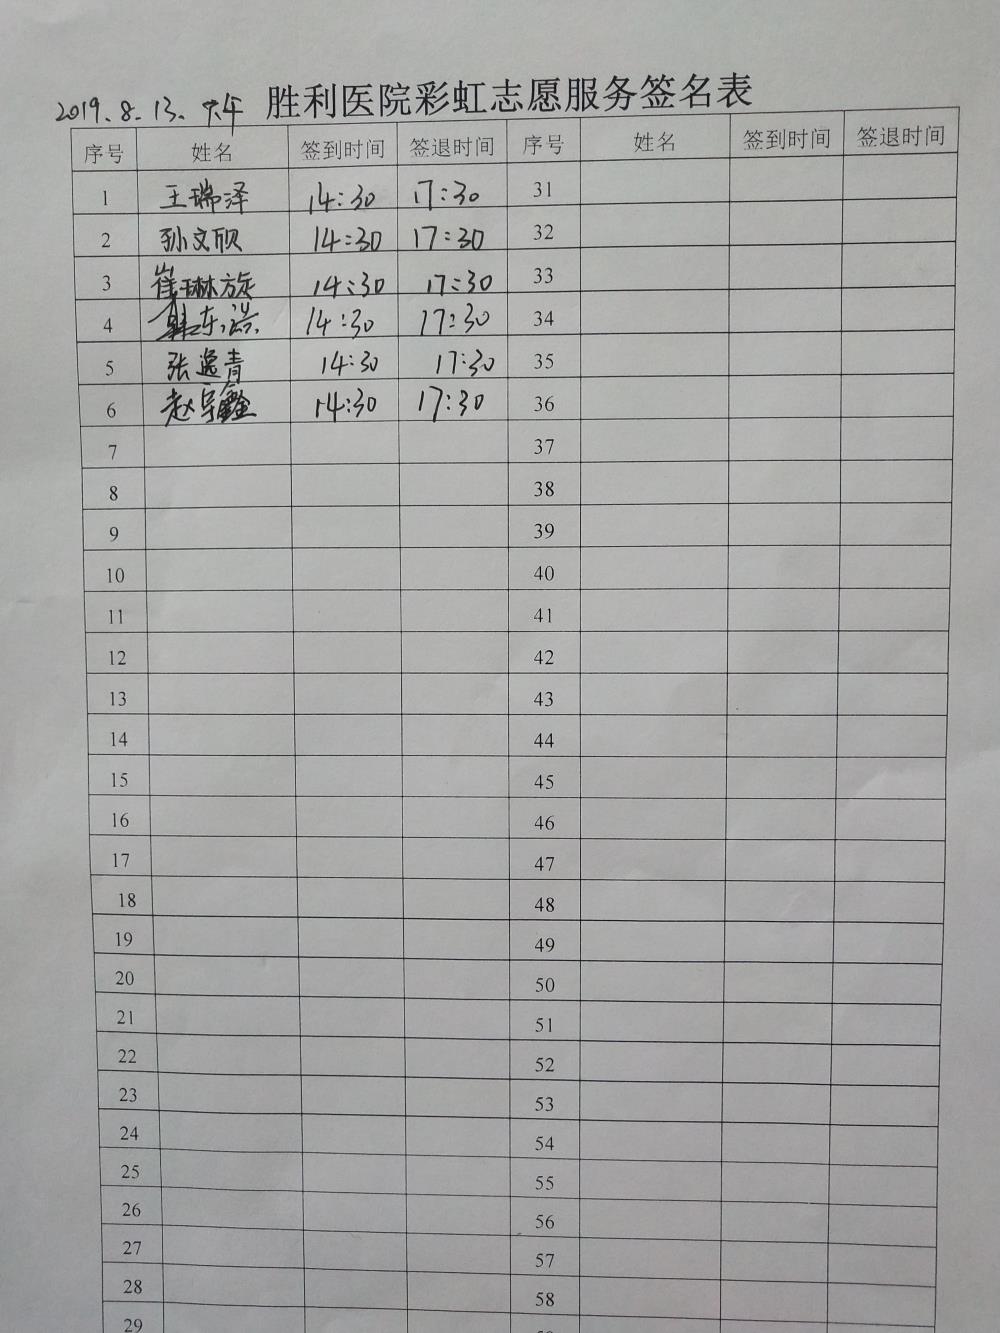 2019.8.13.下午 胜利医院彩虹志愿服务签名表
序号 姓名 签到时间 签退时间 序号 姓名 签到时间 签退时间
1 王瑞泽 14:30 17:30 31
2 孙文欣 14:30 17:30 32
3 崔琳旋 14:30 17:30 33
4 韩东浩 14:30 17:30 34
5 张逸青 14:30 17:30 35
6 赵宇鑫 14:30 17:30 36
7 37
8 38
9 39
10 40
11 41
12 42
13 43
14 44
15 45
16 46
17 47
18 48
19 49
20 50
21 51
22 52
23 53
24 54
25 55
26 56
27 57
28 58
29